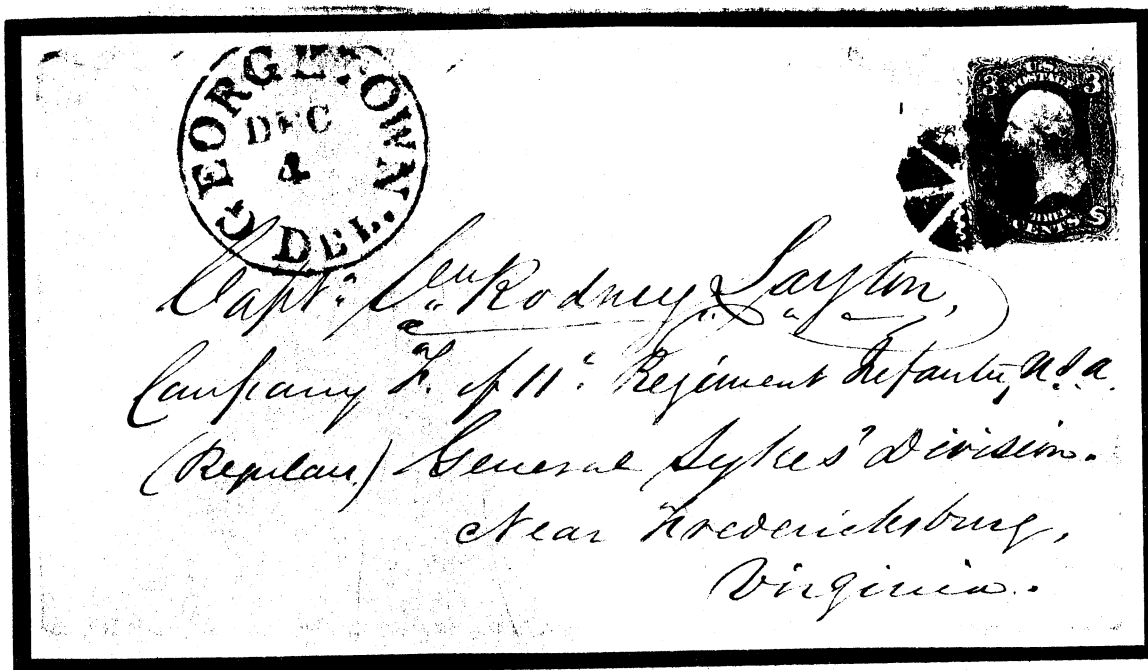 GEORGETOWN
DEC
4
DEL.
3 U.S. 3
POSTAGE
THREE
CENTS
Capt. Rodney Layton,
Company F. of 11. Regiment Infantry, U.S.A.
(Regulars.) General Sykes' Division.
Near Fredericksburg,
Virginia.